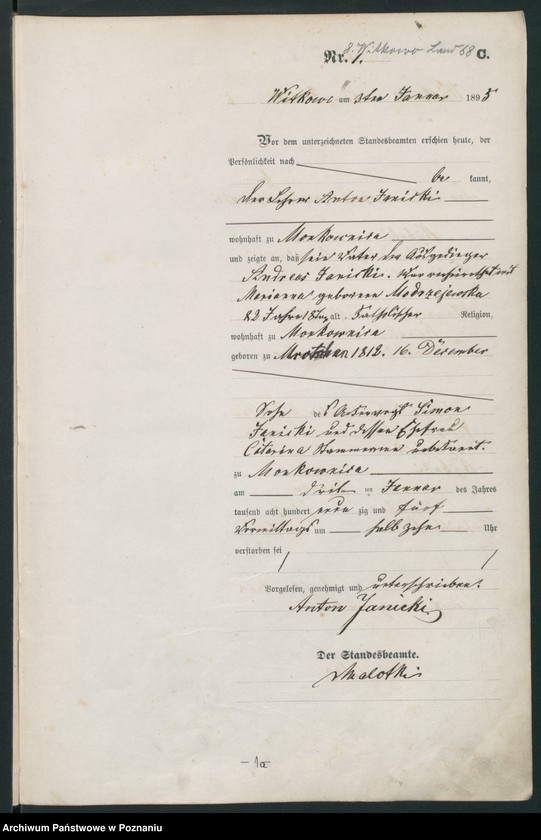 8. Witkowo Land 68
Nr. 1. C.
Witkowo am 3ten Januar 1895
Vor dem unterzeichneten Standesbeamten erschien heute, der
Persönlichkeit nach
be kannt,
der Lehrer Anton Janicki
wohnhaft zu Morkownica
und zeigte an, daß sein Vater der Ausgedinger
Andreas Janicki. War verheirathet mit
Marianna geborene Modrzejewska
82 Jahre 18 Tag alt, katholischer Religion,
wohnhaft zu Morkownica
geboren zu 1812. 16. December
Sohn des Ackervogt Simon
Janicki und dessen Ehefrau
Catarina Stammname unbekannt.
zu Morkownica
am dritten Januar des Jahres
tausend acht hundert neun zig und fünf
Vormittags um halb zehn Uhr
verstorben sei
Vorgelesen, genehmigt und unterschrieben.
Anton Janicki
Der Standesbeamte.
Malotki
— 1a —
Archiwum Państwowe w Poznaniu